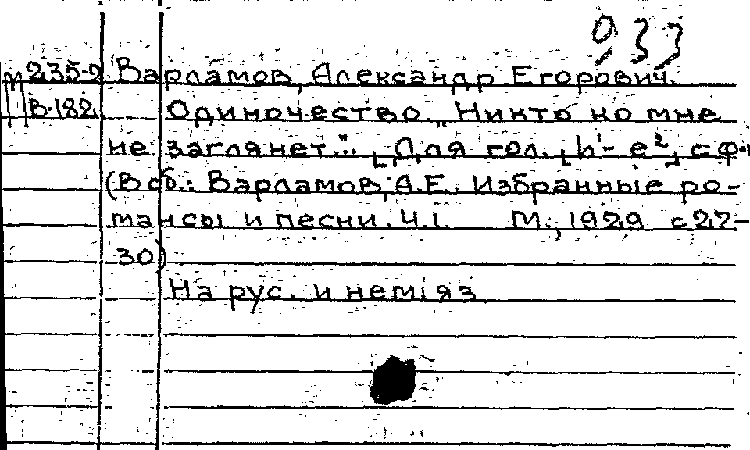 933
м235-2 Варламов, Александр Егорович.
В-182 Одиночество. "Никто ко мне
не заглянет..." [Для гол. [h¹- e²], с ф-
(В сб.: Варламов, А.Е. Избранные ро-
мансы и песни. Ч.1. М., 1929 с 27-
30)
На рус. и нем. яз